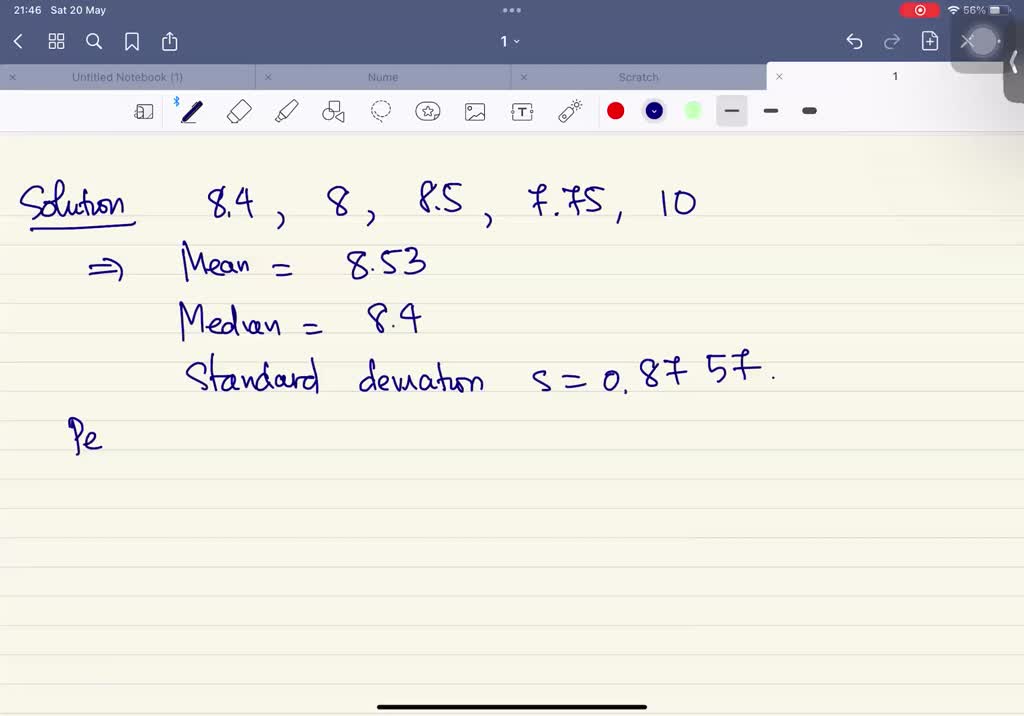 21:46 Sat 20 May 56%
1
Untitled Notebook (1) Nume Scratch 1
Solution 8.4, 8, 8.5, 7.75, 10
⇒ Mean = 8.53
Median = 8.4
Standard deviation s = 0.8757.
Pe